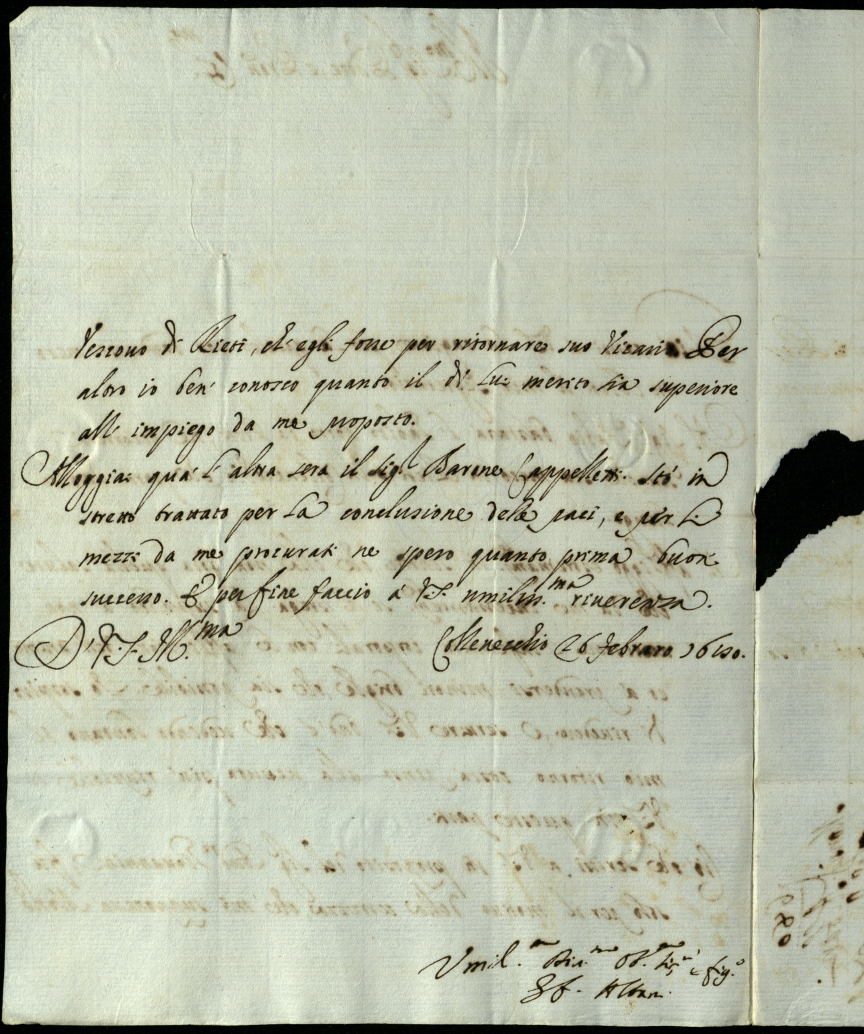 Vescouo di Rieti, ch'egli fosse per ritornare suo Vicario. Per
altro io ben conosco quanto il di Lui merito sia superiore
all' impiego da me proposto.
Alloggiai quà l'altra sera il Sig.r Barone Cappelletti. Stò in
stretto trattato per la conclusione delle paci, e per li
mezzi da me procurati ne spero quanto prima buon
successo. E per fine faccio à V.S. umiliss.ma riuerenza.
D. V.S. Ill.ma
Collevecchio 26 Febraro 16
Umil.mo Diu.mo Ob.mo
Albani